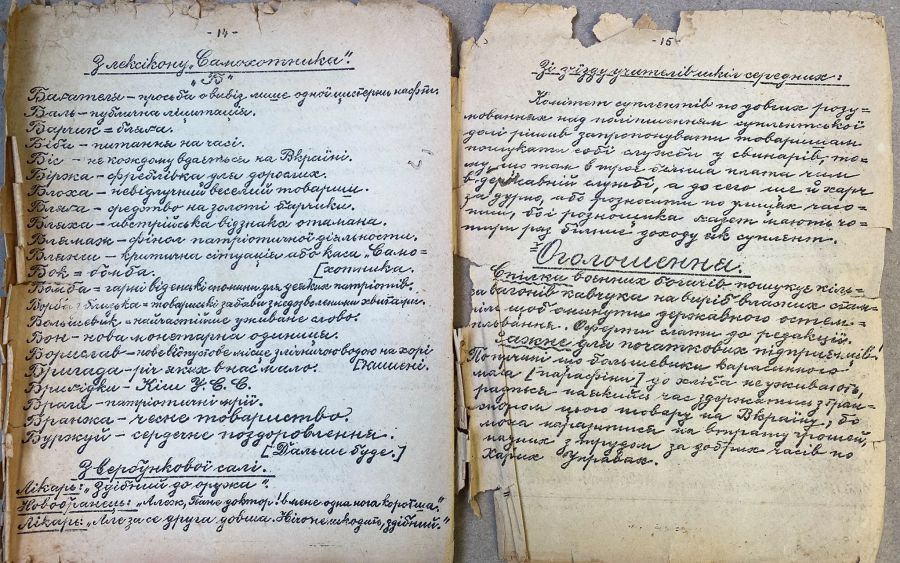 - 14 -
З лексікону „Самохотника".
„Б"
Багателя – просьба о вивіз лише одної цистерни нафти.
Баль – публична ліцитація.
Барик = бляга.
Біба – питання на часі.
Біс – не кождому вдається на Вкраїні.
Біржа – фреблівка для дорослих.
Блоха – невідлучний веселий товариш.
Бляга – средство на золоті барики.
Бляха – австрійська відзнака отамана.
Блямаж – фінал патріотичної діяльности.
Блянси – критична ситуація або каса „Само-
Бок = бомба. [хотника.
Бомба = гарні віденські спомини для деяких патріотів.
Борба близька = товариські забави з надуволеними квитами.
Большевик = найчастійше уживане слово.
Бон – нова монетарна одиниця.
Борислав – нове відпустове місце з лічничою водою на хорі
Бригада – річ яких в нас мало. [кишені.
Бригідка – Кіш У.С.С.
Брага – патріотичні мрії.
Бранка – чесне товариство.
Буржуй – сердечне поздоровлення.
[Дальше буде.]
З вербункової салі.
Лікарь: „Здібний до оружа".
Новобранець: „Алеж, Пане доктор! в мене одна нога коротша."
Лікарь: „Але за се друга довша. Нічо не шкодить, здібний."
- 15 -
Зі зʼїзду учителів шкіл середних:
Комітет суплентів по довгих розду-
мованнях над поліпшенням суплентської
долі рішив запропонувати товаришам
пошукати собі служби у свинарів, то-
му що там в троє більша плата чим
в державній службі, а до сего ще й харч
за дурно, або розносити по улицях часо-
писи, бо і розношики газет мають чо-
тири раз більше доходу як суплент.
Оголошення.
Спілка воєнних богачів пошукує кіль-
ка вагонів кавчука на виріб власних стам-
пілів щоб оминути державного остем-
плювання. Оферти слати до редакцій.
Важне для початкових підприємців!
По причині що большевики карасинового
масла [парафіни] до хліба не уживають,
радиться на якийсь час здержатись з тран-
спортом цього товару на Вкраїну, бо
можна наразитися на втрату грошей,
за добрих часів по
Харч. Управах.